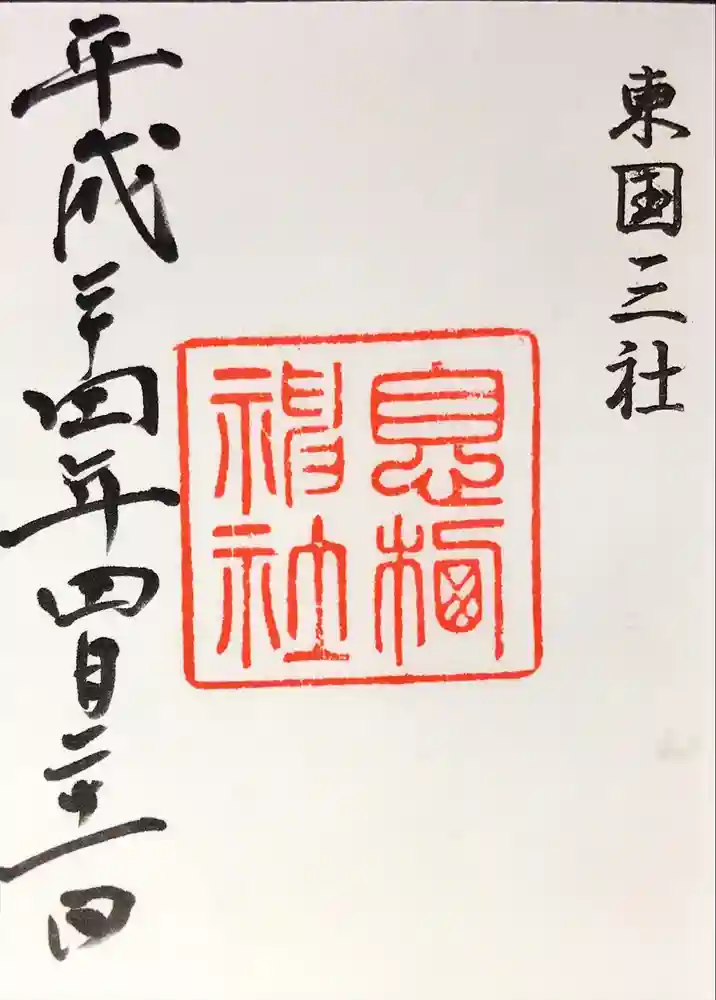 東国三社
息栖
神社
平成二十四年四月二十一日